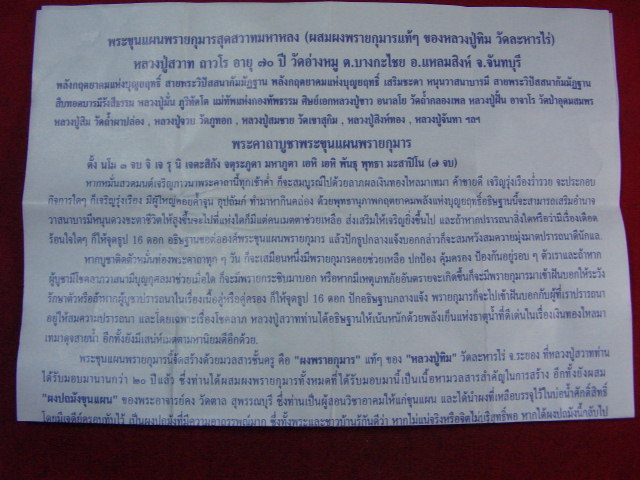 พระขุนแผนพรายกุมารสุดสวาทมหาหลง (ผสมผงพรายกุมารแท้ๆ ของหลวงปู่ทิม วัดละหารไร่)
หลวงปู่สวาท ถาวโร อายุ ๗๐ ปี วัดอ่างหมู ต.บางกะไชย อ.แหลมสิงห์ จ.จันทบุรี
พลังกฤตยาคมแห่งบุญฤทธิ์ สายพระวิปัสสนากัมมัฏฐาน พลังกฤตยาคมแห่งบุญฤทธิ์ เสริมชะตา หนุนวาสนาบารมี สายพระวิปัสสนากัมมัฏฐาน
สืบทอดบารมีรังสีธรรม หลวงปู่มั่น ภูริทัตโต แม่ทัพแห่งกองทัพธรรม ศิษย์เอกหลวงปู่ขาว อนาลโย วัดถ้ำกลองเพล หลวงปู่ฝั้น อาจาโร วัดป่าอุดมสมพร
หลวงปู่สิม วัดถ้ำผาปล่อง , หลวงปู่จวน วัดภูทอก , หลวงปู่สมชาย วัดเขาสุกิม , หลวงปู่สิงห์ทอง , หลวงปู่จันทา ฯลฯ
พระคาถาบูชาพระขุนแผนพรายกุมาร
ตั้ง นโม ๓ จบ จิ เจ รุ นิ เจตะสิกัง จตุระภูตา มหาภูตา เอหิ เอหิ พันธุ พุทธา มะสาปิโน (๗ จบ)
หากหมั่นสวดมนต์เจริญภาวนาพระคาถานี้ทุกเช้าค่ำ ก็จะสมบูรณ์ไปด้วยลาภผลเงินทองไหลมาเทมา ค้าขายดี เจริญรุ่งเรืองร่ำรวย จะประกอบ
กิจการใดๆ ก็เจริญรุ่งเรือง มีผู้ใหญ่คอยค้ำจุน อุปถัมภ์ ทำมาหากินคล่อง ด้วยพุทธานุภาพกฤตยาคมพลังแห่งบุญฤทธิ์อธิษฐานนี้จะสามารถเสริมอำนาจ
วาสนาบารมีหนุนดวงชะตาชีวิตให้สูงขึ้นจะไปที่แห่งใดก็มีแต่คนเมตตาช่วยเหลือ ส่งเสริมให้เจริญยิ่งขึ้นไป และถ้าหากปรารถนาสิ่งใดหรือว่ามีเรื่องเดือด
ร้อนใจใดๆ ก็ให้จุดธูป 16 ดอก อธิษฐานขอต่อองค์พระขุนแผนพรายกุมาร แล้วปักธูปกลางแจ้งบอกกล่าวก็จะสมหวังสมความมุ่งมาดปรารถนาดีนักแล.
หากบูชาติดตัวหมั่นท่องพระคาถาทุก ๆ วัน ก็จะเสมือนหนึ่งมีพรายกุมารคอยช่วยเหลือ ปกป้อง คุ้มครอง ป้องกันอยู่รอบ ๆ ตัวเราและถ้าหาก
ผู้บูชามีโชคลาภวาสนามีบุญกุศลมาช่วยเมื่อใด ก็จะมีพรายกระซิบมาบอก หรือหากมีเหตุเภทภัยอันตรายจะเกิดขึ้นก็จะมีพรายกุมารมาเข้าฝันบอกให้ระวัง
รักษาตัวหรือถ้าหากผู้บูชาปรารถนาในเรื่องเนื้อคู่หรือคู่ครอง ก็ให้จุดธูป 16 ดอก ปักอธิษฐานกลางแจ้ง พรายกุมารก็จะไปเข้าฝันบอกกับผู้ที่เราปรารถนา
อยู่ให้สมความปรารถนา และโดยเฉพาะเรื่องโชคลาภ หลวงปู่สวาทท่านได้อธิษฐานให้เน้นหนักด้วยพลังเย็นแห่งธาตุน้ำที่ดีเด่นในเรื่องเงินทองไหลมา
เทมาดุจสายน้ำ อีกทั้งยังมีเสน่ห์เมตตามหานิยมดีอีกด้วย.
พระขุนแผนพรายกุมารนี้จัดสร้างด้วยมวลสารชั้นครู คือ "ผงพรายกุมาร" แท้ๆ ของ "หลวงปู่ทิม" วัดละหารไร่ จ.ระยอง ที่หลวงปู่สวาทท่าน
ได้รับมอบมานานกว่า ๒๐ ปีแล้ว ซึ่งท่านได้ผสมผงพรายกุมารทั้งหมดที่ได้รับมอบมานี้เป็นเนื้อหามวลสารสำคัญในการสร้าง อีกทั้งยังผสม
"ผงปถมังขุนแผน" ของพระอาจารย์คง วัดตาล สุพรรณบุรี ซึ่งท่านเป็นผู้สอนวิชาอาคมให้แก่ขุนแผน และได้นำผงที่เหลือบรรจุไว้ในบ่อน้ำศักดิ์สิทธิ์
โดยมีเจดีย์ครอบทับไว้ เป็นผงปถมังที่มีความอาถรรพณ์มาก ซึ่งทั้งพระและชาวบ้านรู้กันดีว่า หากไม่แน่จริงหรือจิตไม่บริสุทธิ์พอ หากได้ผงปถมังนี้กลับไป